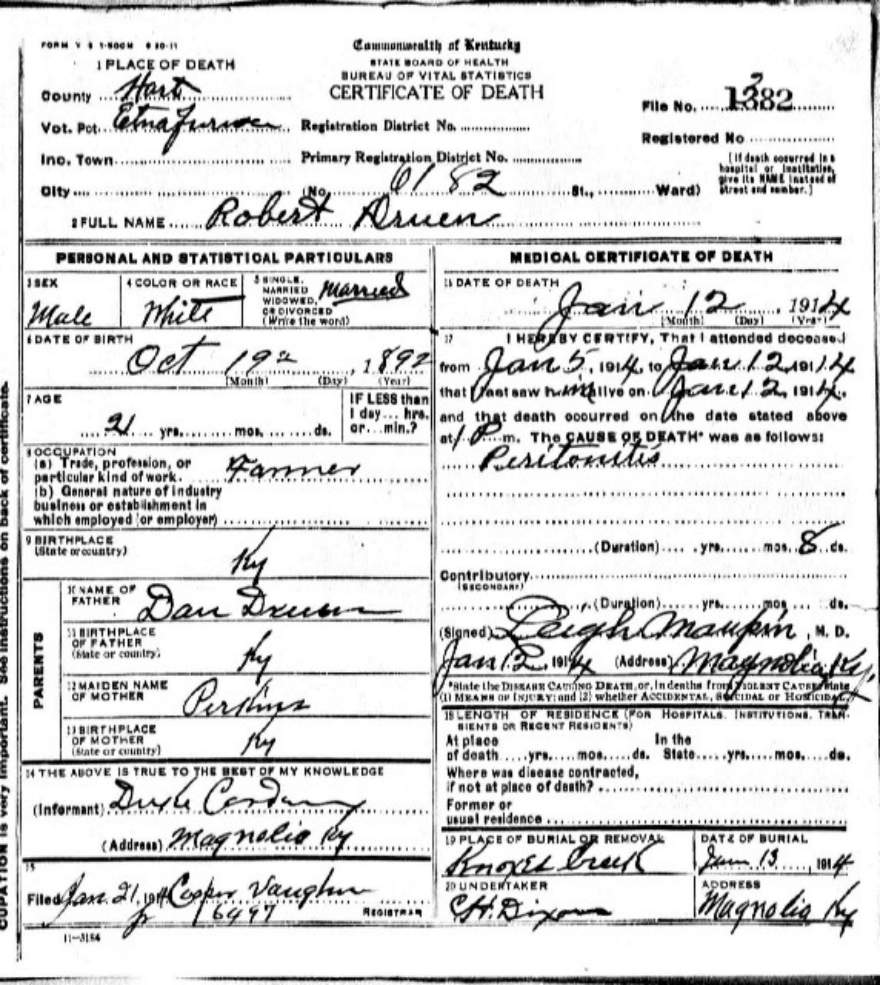 FORM V S 1-500M 6 30-11
Commonwealth of Kentucky
STATE BOARD OF HEALTH
BUREAU OF VITAL STATISTICS
CERTIFICATE OF DEATH
1 PLACE OF DEATH
County Hart
Vot. Pct.
Inc. Town
City
Registration District No.
Primary Registration District No.
(No. 6182 St., Ward)
File No. 1382
Registered No
(If death occurred in a
hospital or institution,
give its NAME instead of
street and number.)
2 FULL NAME Robert Druen
PERSONAL AND STATISTICAL PARTICULARS
3 SEX
Male
4 COLOR OR RACE
White
5 SINGLE,
MARRIED
WIDOWED,
OR DIVORCED
(Write the word)
Married
6 DATE OF BIRTH
Oct 19 1892
(Month) (Day) (Year)
7 AGE
21 yrs. mos. ds.
IF LESS than
1 day... hrs.
or...min.?
8 OCCUPATION
(a) Trade, profession, or
particular kind of work. Farmer
(b) General nature of industry
business or establishment in
which employed (or employer)
9 BIRTHPLACE
(State or country)
Ky
PARENTS
10 NAME OF
FATHER
Dan Druen
11 BIRTHPLACE
OF FATHER
(State or country)
Ky
12 MAIDEN NAME
OF MOTHER
Perkins
13 BIRTHPLACE
OF MOTHER
(State or country)
Ky
14 THE ABOVE IS TRUE TO THE BEST OF MY KNOWLEDGE
(Informant)
(Address) Magnolia Ky
15
Filed Jan. 21, 1914 Vaughn
16497 REGISTRAR
11-3184
MEDICAL CERTIFICATE OF DEATH
16 DATE OF DEATH
Jan 12, 1914
(Month) (Day) (Year)
17 I HEREBY CERTIFY, That I attended deceased
from Jan 5, 1914, to Jan 12, 1914
that I last saw him alive on Jan 12, 1914,
and that death occurred on the date stated above
at 1 P m. The CAUSE OF DEATH* was as follows:
Peritonitis
(Duration) yrs. mos. 8 ds.
Contributory
(SECONDARY)
(Duration) yrs. mos. ds.
(Signed) Leigh Maupin, M. D.
Jan 12 1914 (Address) Magnolia Ky.
*State the DISEASE CAUSING DEATH, or, in deaths from VIOLENT CAUSES, state
(1) MEANS OF INJURY; and (2) whether ACCIDENTAL, SUICIDAL OR HOMICIDAL.
18 LENGTH OF RESIDENCE (FOR HOSPITALS, INSTITUTIONS, TRAN-
SIENTS OR RECENT RESIDENTS)
At place In the
of death yrs. mos. ds. State yrs. mos. ds.
Where was disease contracted,
if not at place of death?
Former or
usual residence
19 PLACE OF BURIAL OR REMOVAL
Knoxes Creek
DATE OF BURIAL
Jan 13, 1914
20 UNDERTAKER
C.H. Dixon
ADDRESS
Magnolia Ky
CUPATION is very important. See instructions on back of certificate.